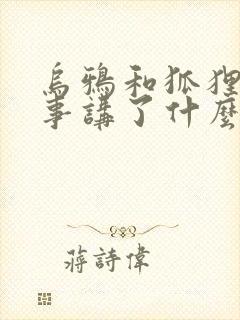 烏鴉和狐狸
事講了什麼
蔣詩偉